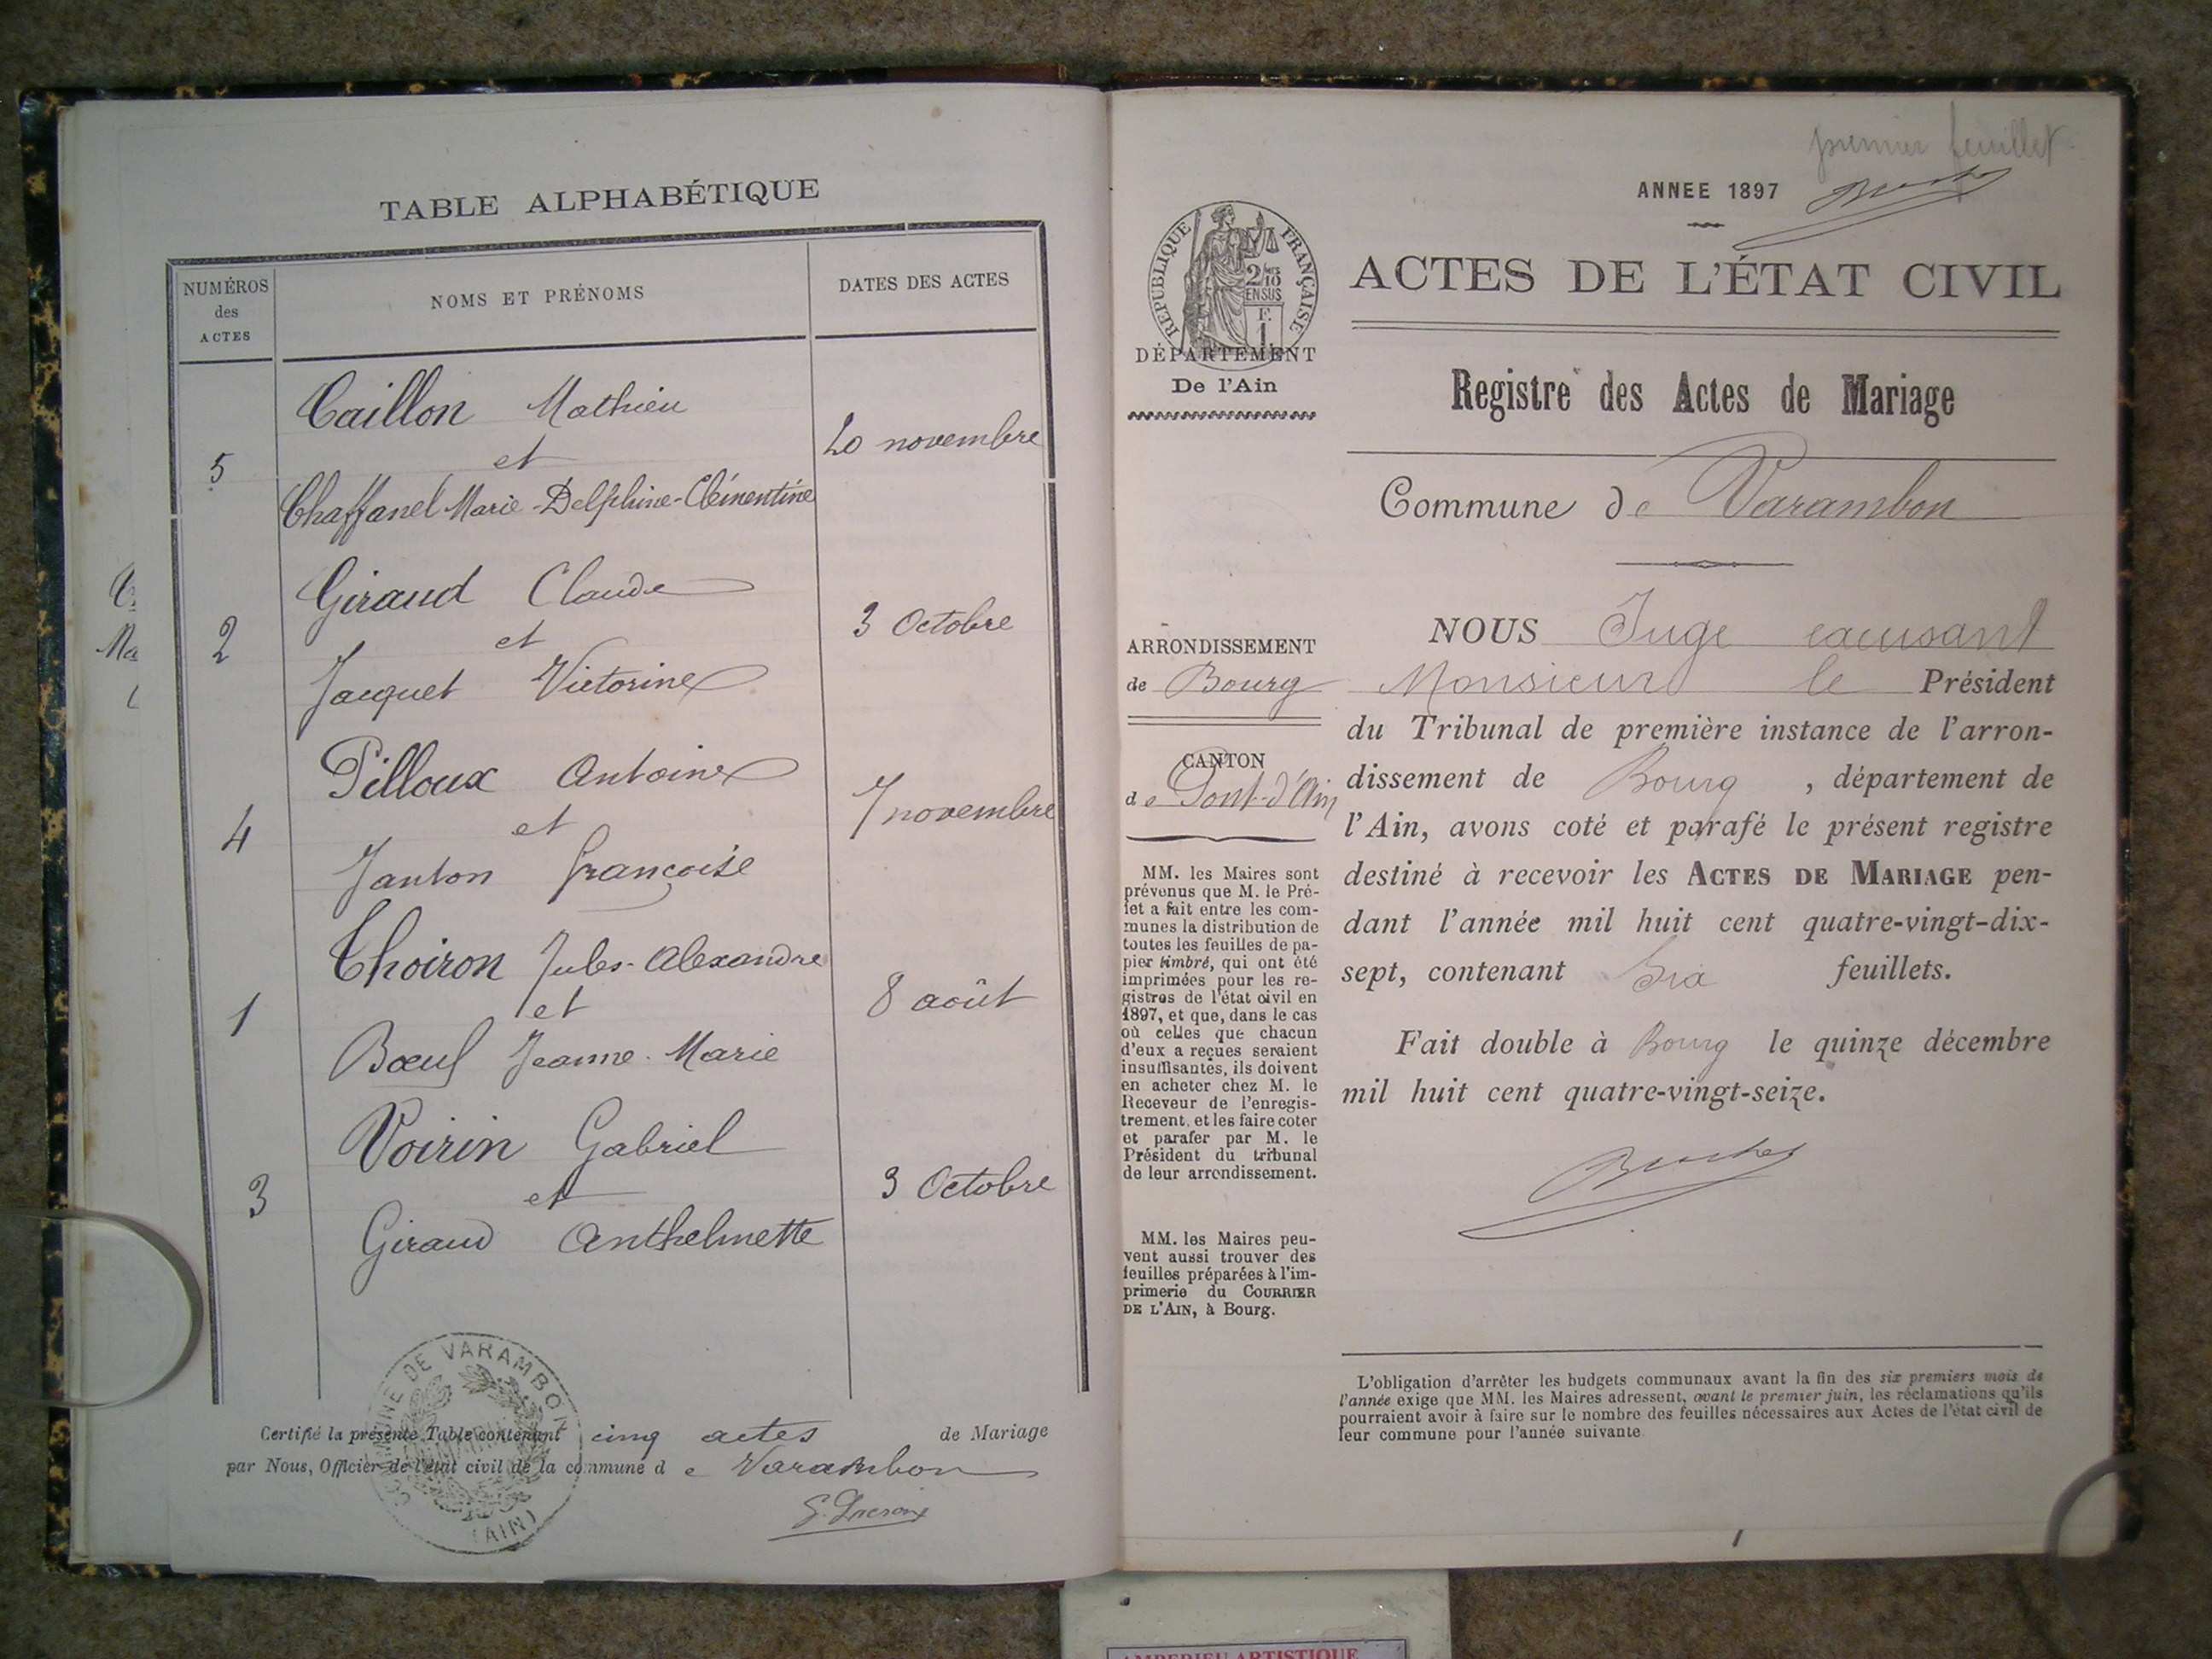 TABLE ALPHABÉTIQUE
NUMÉROS
des
ACTES
NOMS ET PRÉNOMS
DATES DES ACTES
Caillon Mathieu
5 et 20 novembre
Chaffanel Marie-Delphine-Clémentine
Giraud Claude
2 et 3 Octobre
Jacquet Victorine
Pilloux Antoine
4 et 7 novembre
Janton Françoise
Thoiron Jules-Alexandre
1 et 8 août
Bœuf Jeanne-Marie
Voirin Gabriel
3 et 3 Octobre
Giraud Anthelmette
COMMUNE DE VARAMBON
(AIN)
Certifié la présente Table contenant cinq actes de Mariage
par Nous, Officier de l'état civil de la commune de Varambon
premier feuillet
ANNEE 1897
RÉPUBLIQUE FRANÇAISE
2/10
EN SUS
F.
1
ACTES DE L'ÉTAT CIVIL
DÉPARTEMENT
De l'Ain
Registre des Actes de Mariage
Commune de Varambon
ARRONDISSEMENT
de Bourg
CANTON
de Pont-d'Ain
MM. les Maires sont
prévenus que M. le Pré-
fet a fait entre les com-
munes la distribution de
toutes les feuilles de pa-
pier timbré, qui ont été
imprimées pour les re-
gistres de l'état civil en
1897, et que, dans le cas
où celles que chacun
d'eux a reçues seraient
insuffisantes, ils doivent
en acheter chez M. le
Receveur de l'enregis-
trement, et les faire coter
et parafer par M. le
Président du tribunal
de leur arrondissement.
MM. les Maires peu-
vent aussi trouver des
feuilles préparées à l'im-
primerie du COURRIER
DE L'AIN, à Bourg.
NOUS Juge excusant
Monsieur le Président
du Tribunal de première instance de l'arron-
dissement de Bourg, département de
l'Ain, avons coté et parafé le présent registre
destiné à recevoir les ACTES DE MARIAGE pen-
dant l'année mil huit cent quatre-vingt-dix-
sept, contenant Six feuillets.
Fait double à Bourg le quinze décembre
mil huit cent quatre-vingt-seize.
L'obligation d'arrêter les budgets communaux avant la fin des six premiers mois de
l'année exige que MM. les Maires adressent, avant le premier juin, les réclamations qu'ils
pourraient avoir à faire sur le nombre des feuilles nécessaires aux Actes de l'état civil de
leur commune pour l'année suivante
AMBERIEU ARTISTIQUE